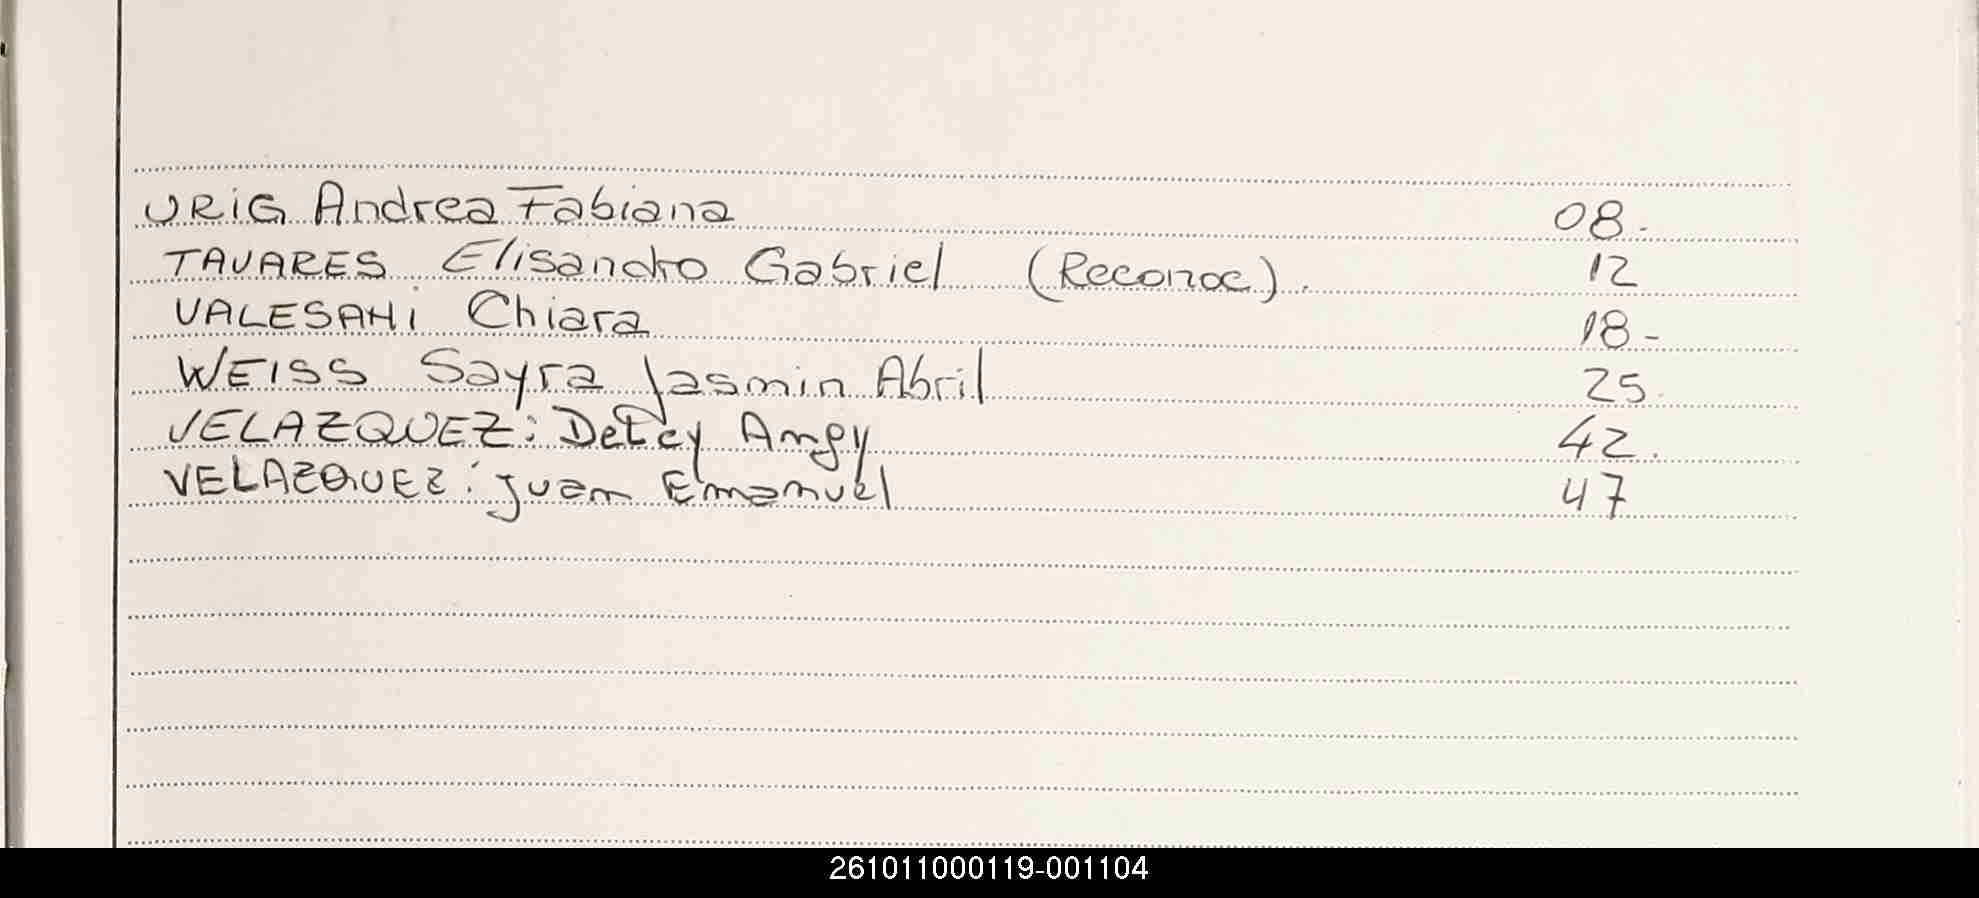 URiG Andrea Fabiana 08.
TAVARES Elisandro Gabriel (Reconoc). 12
VALESANi Chiara 18-
WEISS Sayra Jasmin Abril 25.
VELAZQUEZ: Angy 42.
VELAZQUEZ: Juan Emanuel 47
261011000119-001104